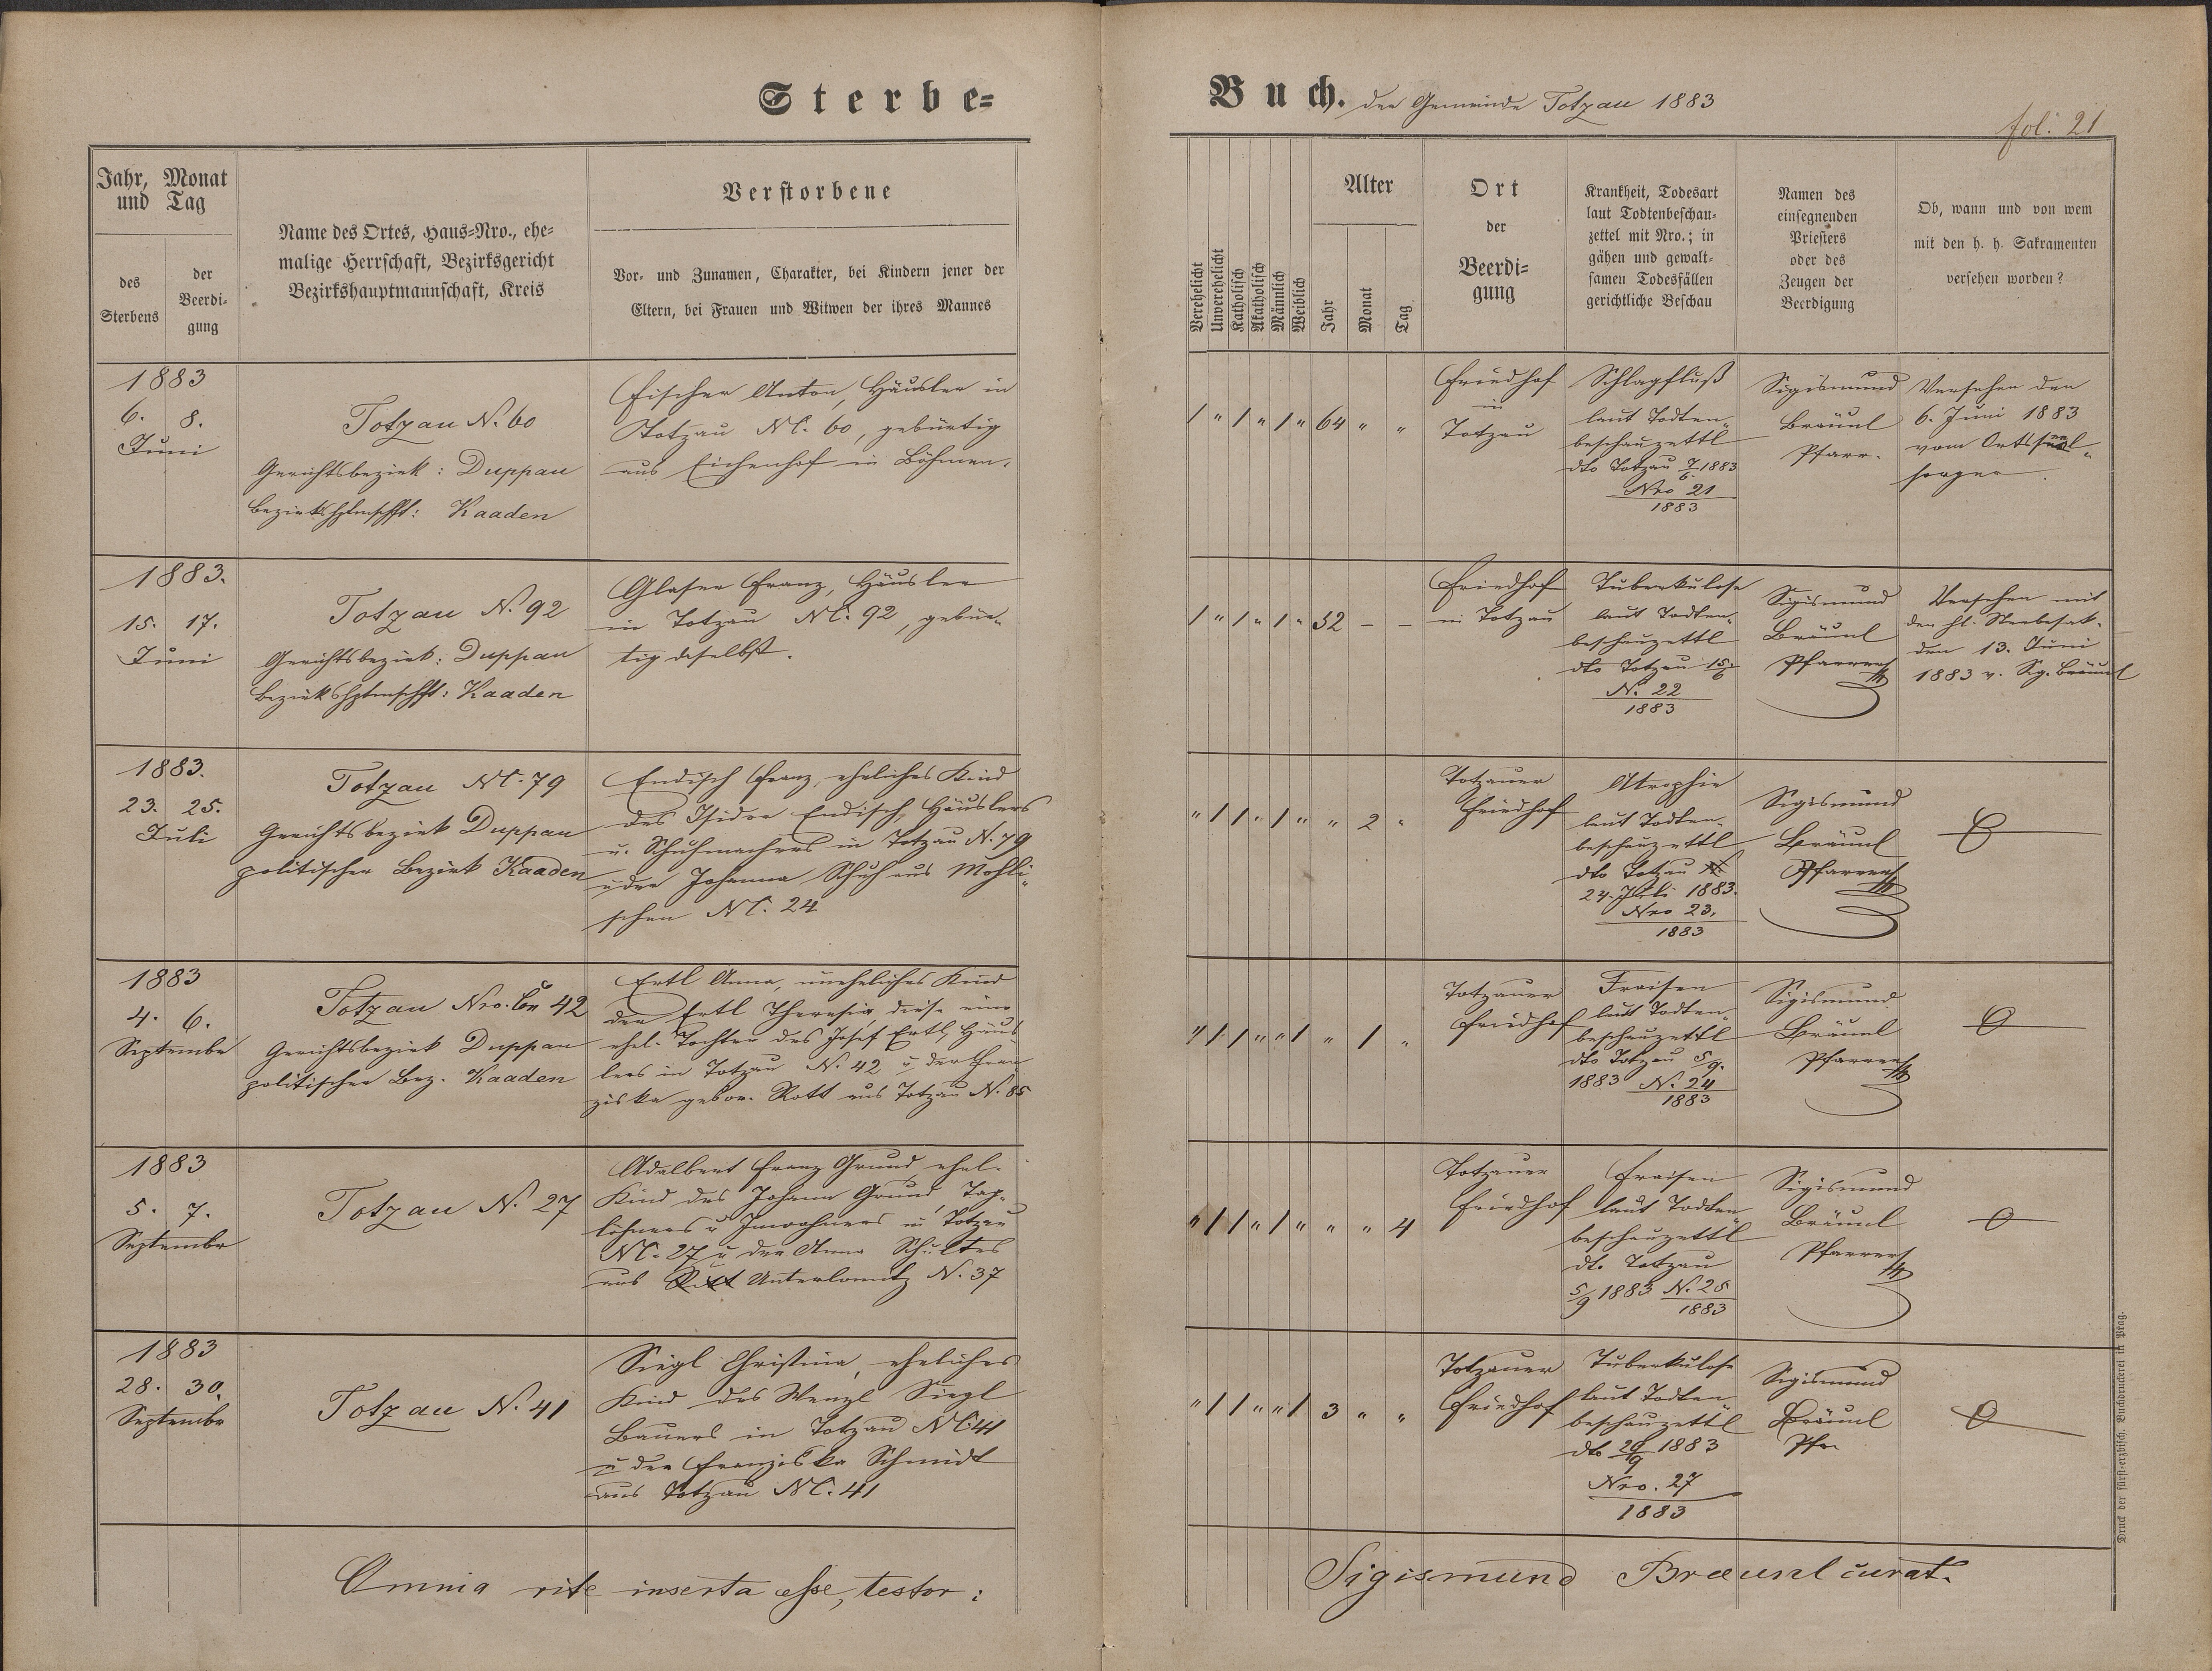 Sterbe=
Buch. der Gemeinde Totzau 1883
fol. 21
Jahr, Monat
und Tag
des
Sterbens
der
Beerdi-
gung
Name des Ortes, Haus-Nro., ehe-
malige Herrschaft, Bezirksgericht
Bezirkshauptmannschaft, Kreis
Verstorbene
Vor- und Zunamen, Charakter, bei Kindern jener der
Eltern, bei Frauen und Witwen der ihres Mannes
Verehelicht
Unverehelicht
Katholisch
Akatholisch
Männlich
Weiblich
Alter
Jahr
Monat
Tag
Ort
der
Beerdi-
gung
Krankheit, Todesart
laut Todtenbeschau-
zettel mit Nro.; in
gähen und gewalt-
samen Todesfällen
gerichtliche Beschau
Namen des
einsegnenden
Priesters
oder des
Zeugen der
Beerdigung
Ob, wann und von wem
mit den h. h. Sakramenten
versehen worden?
1883
6. 8.
Juni
Totzau N. 60
Gerichtsbezirk: Duppau
Bezirkshptmschft: Kaaden
Fischer Anton, Häusler in
Totzau NC. 60, gebürtig
aus Eichenhof in Böhmen.
/ " / " / " 64 " "
Friedhof
in
Totzau
Schlagfluß
laut Todten-
beschauzettl
dto Totzau 7/6 1883
Nro 21
1883
Sigismund
Bräunl
Pfarr.
Versehen den
6. Juni 1883
vom Ortsseel-
sorger.
1883.
15. 17.
Juni
Totzau N. 92
Gerichtsbezirk: Duppau
Bezirkshptmschft: Kaaden
Glaser Franz, Häusler
in Totzau NC. 92, gebür-
tig daselbst.
/ " / " / " 52 - -
Friedhof
in Totzau
Tuberkulose
laut Todten-
beschauzettl
dto Totzau 15/6
N. 22
1883
Sigismund
Bräunl
Pfarrer
Versehen mit
den hl. Sterbesak.
den 13. Juni
1883 v. Sg. Bräunl
1883.
23. 25.
Juli
Totzau NC. 79
Gerichtsbezirk Duppau
politischer Bezirk Kaaden
Endisch Franz, eheliches Kind
des Isidor Endisch, Häuslers
u. Schuhmachers in Totzau N. 79
u der Johanna Schuh aus Mohli-
schen NC. 24
" / / " / " " 2 "
Totzauer
Friedhof
Atrophie
laut Todten-
beschauzettl
dto Totzau
24. Juli 1883.
Nro 23.
1883
Sigismund
Bräunl
Pfarrer
1883
4. 6.
September
Totzau Nro. 42
Gerichtsbezirk Duppau
politischer Bez. Kaaden
Ertl Anna, uneheliches Kind
der Ertl Theresia diese eine
ehel. Tochter des Josef Ertl, Häus-
lers in Totzau N. 42 u der Fran
ziska gebor. Rott aus Totzau N. 85
" / / " " / " 1 "
Totzauer
Friedhof
Fraisen
laut Todten-
beschauzettl
dto Totzau 5/9.
1883 N. 24
1883
Sigismund
Bräunl
Pfarrer
1883
5. 7.
September
Totzau N. 27
Adalbert Franz Grund, ehel.
Kind des Johann Grund, Tag-
löhners u Inwohners in Totzau
NC. 27 u der Anna Schultes
aus Unterlomitz N. 37
" / / " / " " " 4
Totzauer
Friedhof
Fraisen
laut Todten
beschauzettl
dt. Totzau
5/9 1883 N. 25
1883
Sigismund
Bräunl
Pfarrer
1883
28. 30.
September
Totzau N. 41
Siegl Christina, eheliches
Kind des Wenzl Siegl
Bauers in Totzau NC 41
u der Franziska Schmidt
aus Totzau NC. 41
" / / " " / 3 " "
Totzauer
Friedhof
Tuberkulose
laut Todten
beschauzettl
dto 29/9 1883
Nro. 27
1883
Sigismund
Bräunl
Pfr
Omnia rite inserta esse, testor:
Sigismund Braeunl curat.
Druck der fürst-erzbisch. Buchdruckerei in Prag.